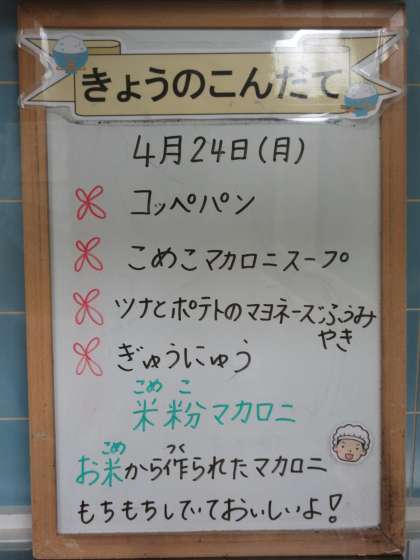 きょうのこんだて
4月24日(月)
コッペパン
こめこマカロニスープ
ツナとポテトのマヨネーズふうみ
やき
ぎゅうにゅう
こめ こ
米粉マカロニ
こめ つく
お米から作られたマカロニ
もちもちしていておいしいよ!